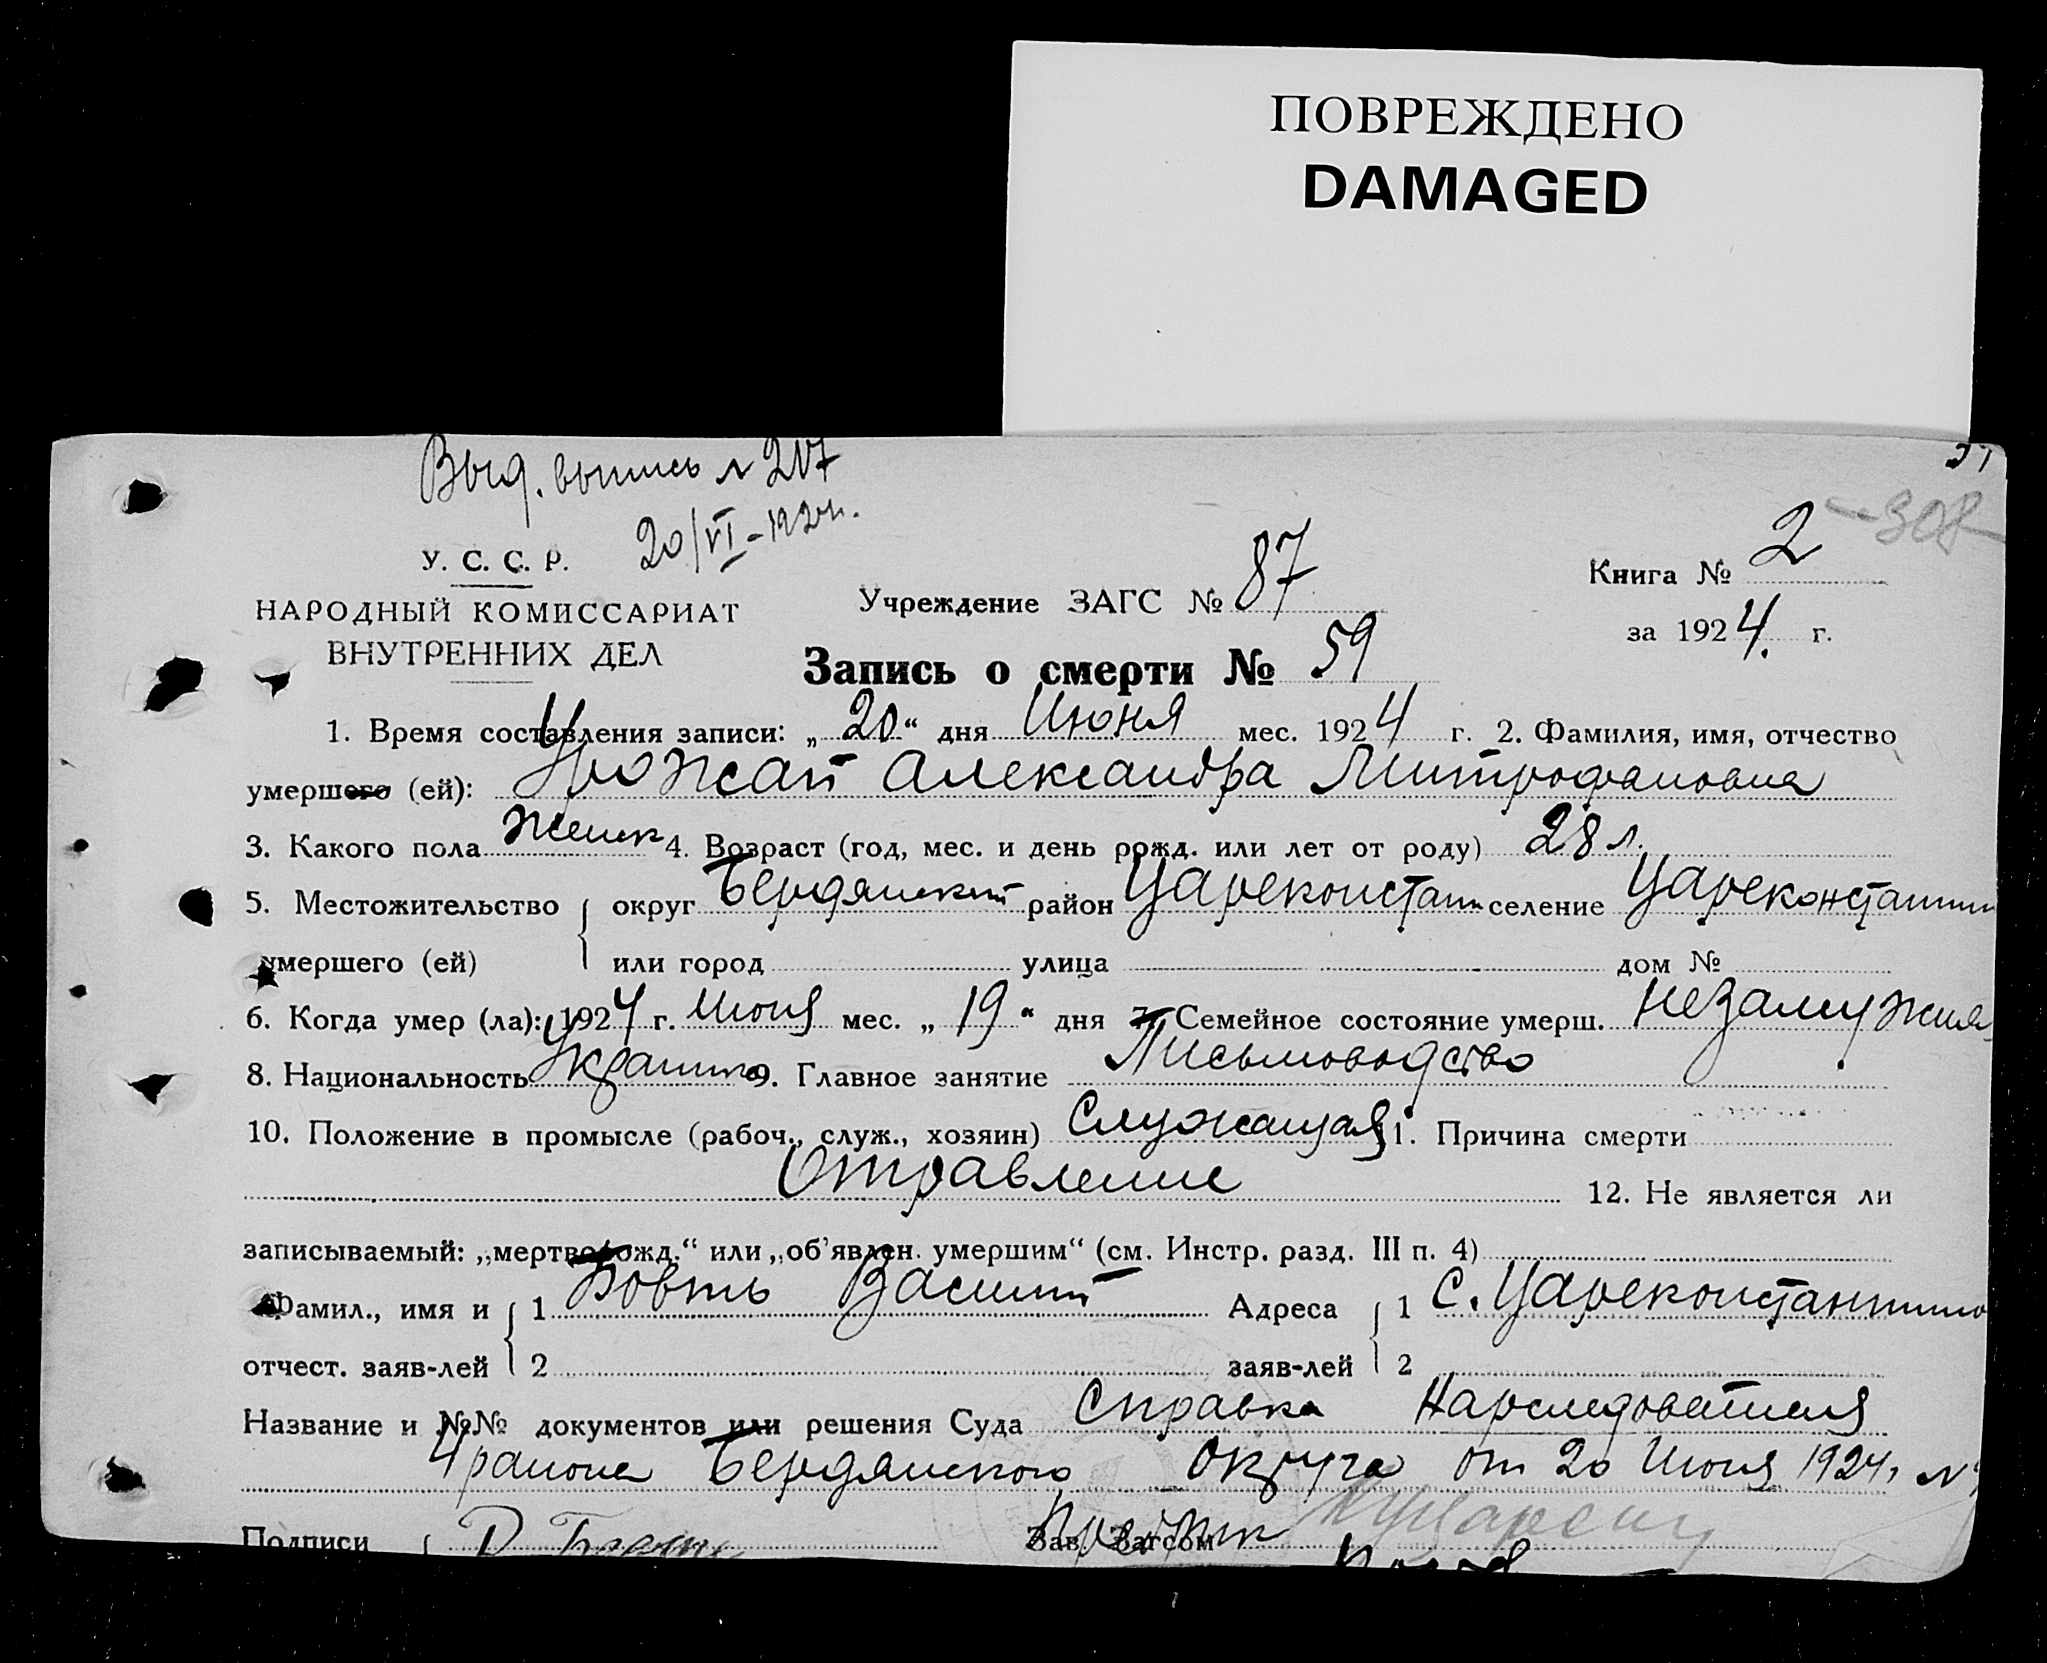 ПОВРЕЖДЕНО
DAMAGED
Выд. выпись № 207
20/VI – 1924 г.
308
У. С. С. Р.
НАРОДНЫЙ КОМИССАРИАТ
ВНУТРЕННИХ ДЕЛ
Учреждение ЗАГС № 87
Книга № 2
за 1924. г.
Запись о смерти № 59
1. Время составления записи: „20“ дня Июня мес. 1924 г. 2. Фамилия, имя, отчество
умершего (ей): Урожай Александра Митрофановна
3. Какого пола женск 4. Возраст (год, мес. и день рожд. или лет от роду) 28 л.
5. Местожительство округ Бердянский район Цареконстан селение Цареконстантин
умершего (ей) или город улица дом №
6. Когда умер (ла): 1924 г. Июня мес. „19“ дня 7. Семейное состояние умерш. незамужняя
8. Национальность Украинка 9. Главное занятие Письмоводство
10. Положение в промысле (рабоч., служ., хозяин) Служащая 11. Причина смерти
Отравление 12. Не является ли
записываемый: „мертворожд.“ или „об'явлен. умершим“ (см. Инстр. разд. III п. 4)
Фамил., имя и 1 Бовть Василий Адреса 1 С. Цареконстантино
отчест. заяв-лей 2 заяв-лей 2
Название и №№ документов или решения Суда Справка Нарследователя
4 района Бердянского округа от 20 Июня 1924 г. №
Подписи Зав. Загсом